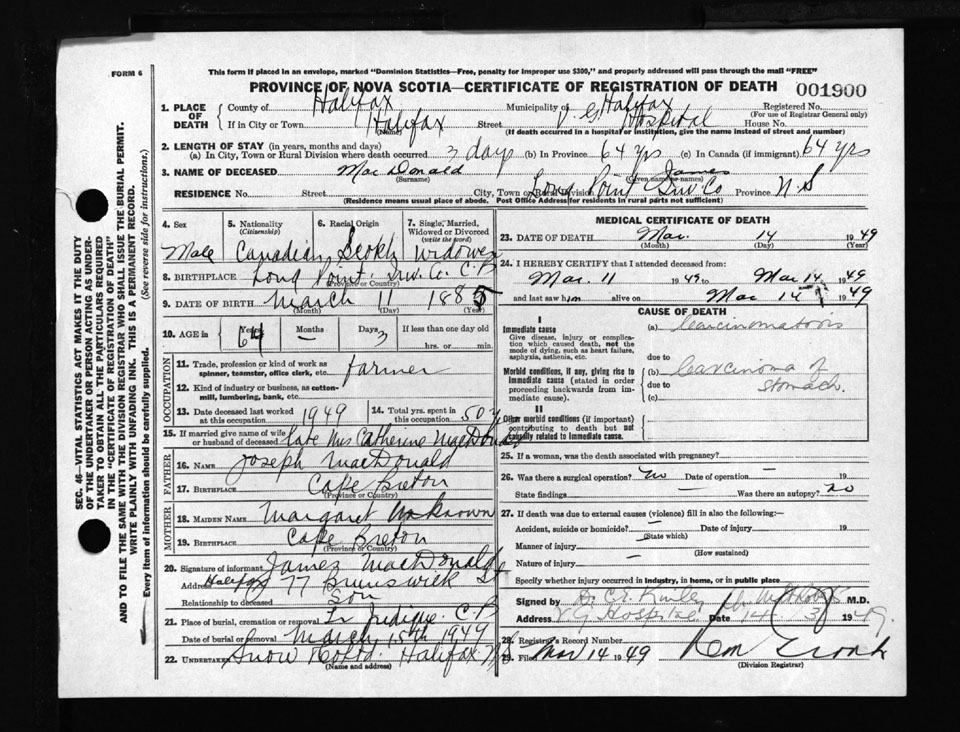 FORM 6
This form if placed in an envelope, marked "Dominion Statistics—Free, penalty for improper use $300," and properly addressed will pass through the mail "FREE"
PROVINCE OF NOVA SCOTIA—CERTIFICATE OF REGISTRATION OF DEATH 001900
1. PLACE OF DEATH
County of Halifax Municipality of Halifax Registered No.
(For use of Registrar General only)
If in City or Town Halifax Street V. G. Hospital House No.
(Name) (If death occurred in a hospital or institution, give the name instead of street and number)
2. LENGTH OF STAY (in years, months and days)
(a) In City, Town or Rural Division where death occurred 3 days (b) In Province 64 yrs (c) In Canada (if immigrant) 64 yrs
3. NAME OF DECEASED MacDonald James
(Surname) (Given name or names)
RESIDENCE No. Street City, Town or Rural Division Long Point Inv. Co Province N.S
(Residence means usual place of abode. Post Office Address for residents in rural parts not sufficient)
4. Sex 5. Nationality (Citizenship) 6. Racial Origin 7. Single, Married, Widowed or Divorced (write the word)
Male Canadian Scotch Widower
8. BIRTHPLACE Long Point. Inv. Co. C.B
(Province or Country)
9. DATE OF BIRTH March 11 1885
(Month) (Day) (Year)
10. AGE in Years Months Days If less than one day old
64 — 3 hrs. or min.
OCCUPATION
11. Trade, profession or kind of work as spinner, teamster, office clerk, etc. farmer
12. Kind of industry or business, as cotton-mill, lumbering, bank, etc.
13. Date deceased last worked at this occupation 1949 14. Total yrs. spent in this occupation 50 y
15. If married give name of wife or husband of deceased late Mrs Catherine MacDonald
FATHER
16. NAME Joseph MacDonald
17. BIRTHPLACE Cape Breton
(Province or Country)
MOTHER
18. MAIDEN NAME Margaret Unknown
19. BIRTHPLACE Cape Breton
(Province or Country)
20. Signature of informant James MacDonald
Address Halifax 77 Brunswick St
Relationship to deceased Son
21. Place of burial, cremation or removal Judique. C.B
Date of burial or removal March 15th 1949
22. Undertaker Snow Halifax N.S
(Name and address)
MEDICAL CERTIFICATE OF DEATH
23. DATE OF DEATH Mar. 14 1949
(Month) (Day) (Year)
24. I HEREBY CERTIFY that I attended deceased from:
Mar. 11 1949 to Mar 14 1949
and last saw him alive on Mar 14 1949
CAUSE OF DEATH
I
Immediate cause
Give disease, injury or complication which caused death, not the mode of dying, such as heart failure, asphyxia, asthenia, etc.
(a) Carcinomatosis
due to
Morbid conditions, if any, giving rise to immediate cause (stated in order proceeding backwards from immediate cause).
(b) Carcinoma of stomach.
due to
(c)
II
Other morbid conditions (if important) contributing to death but not causally related to immediate cause.
25. If a woman, was the death associated with pregnancy?
26. Was there a surgical operation? no Date of operation — 19
State findings — Was there an autopsy? no
27. If death was due to external causes (violence) fill in also the following:—
Accident, suicide or homicide? — Date of injury 19
(State which)
Manner of injury —
(How sustained)
Nature of injury —
Specify whether injury occurred in industry, in home, or in public place
Signed by M.D.
Address V. G Hospital Date 14 3 1949.
28. Registrar's Record Number
29. Filed Mar 14 1949
(Division Registrar)
SEC. 46—VITAL STATISTICS ACT MAKES IT THE DUTY
OF THE UNDERTAKER OR PERSON ACTING AS UNDER-
TAKER TO OBTAIN ALL THE PARTICULARS REQUIRED
IN THE "CERTIFICATE OF REGISTRATION OF DEATH"
AND TO FILE THE SAME WITH THE DIVISION REGISTRAR WHO SHALL ISSUE THE BURIAL PERMIT.
WRITE PLAINLY WITH UNFADING INK. THIS IS A PERMANENT RECORD.
Every item of information should be carefully supplied. (See reverse side for instructions.)